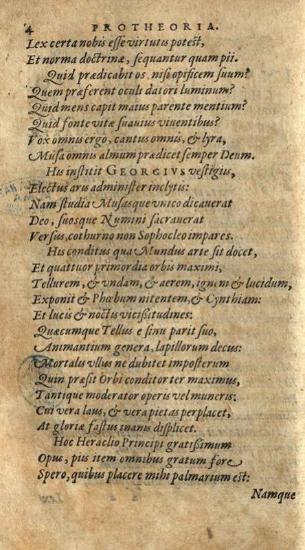 4 PROTHEORIA.
Lex certa nobis esse virtutis potest,
Et norma doctrinæ, sequantur quam pii.
Quid prædicabit os, nisi opificem suum?
Quem præferent oculi datori luminum?
Quid mens capit maius parente mentium?
Quid fonte vitæ suauius viuentibus?
Vox omnis ergo, cantus omnis, & lyra,
Musa omnis almum prædicet semper Deum.
His institit GEORGIVS vestigiis,
Electus aris administer inclytus:
Nam studia Musasque vnico dicauerat
Deo, suosque Numini sacrauerat
Versus, cothurno non Sophocleo impares.
His conditus qua Mundus arte sit docet,
Et quattuor primordia orbis maximi,
Tellurem, & vndam, & aerem, ignem & lucidum,
Exponit & Phœbum nitentem, & Cynthiam:
Et lucis & noctis vicissitudines:
Quæcumque Tellus e sinu parit suo,
Animantium genera, lapillorum decus:
Mortalis vllus ne dubitet imposterum
Quin præsit Orbi conditor ter maximus,
Tantique moderator operis vel muneris:
Cui vera laus, & vera pietas perplacet,
At gloriæ fastus inanis displicet.
Hoc Heraclio Principi gratissimum
Opus, piis item omnibus gratum fore
Spero, quibus placere mihi palmarium est:
Namque